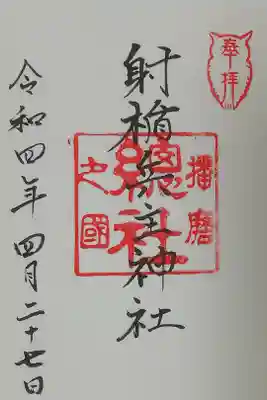 奉拝
射楯兵主神社
播磨
總社
之國
令和四年四月二十七日